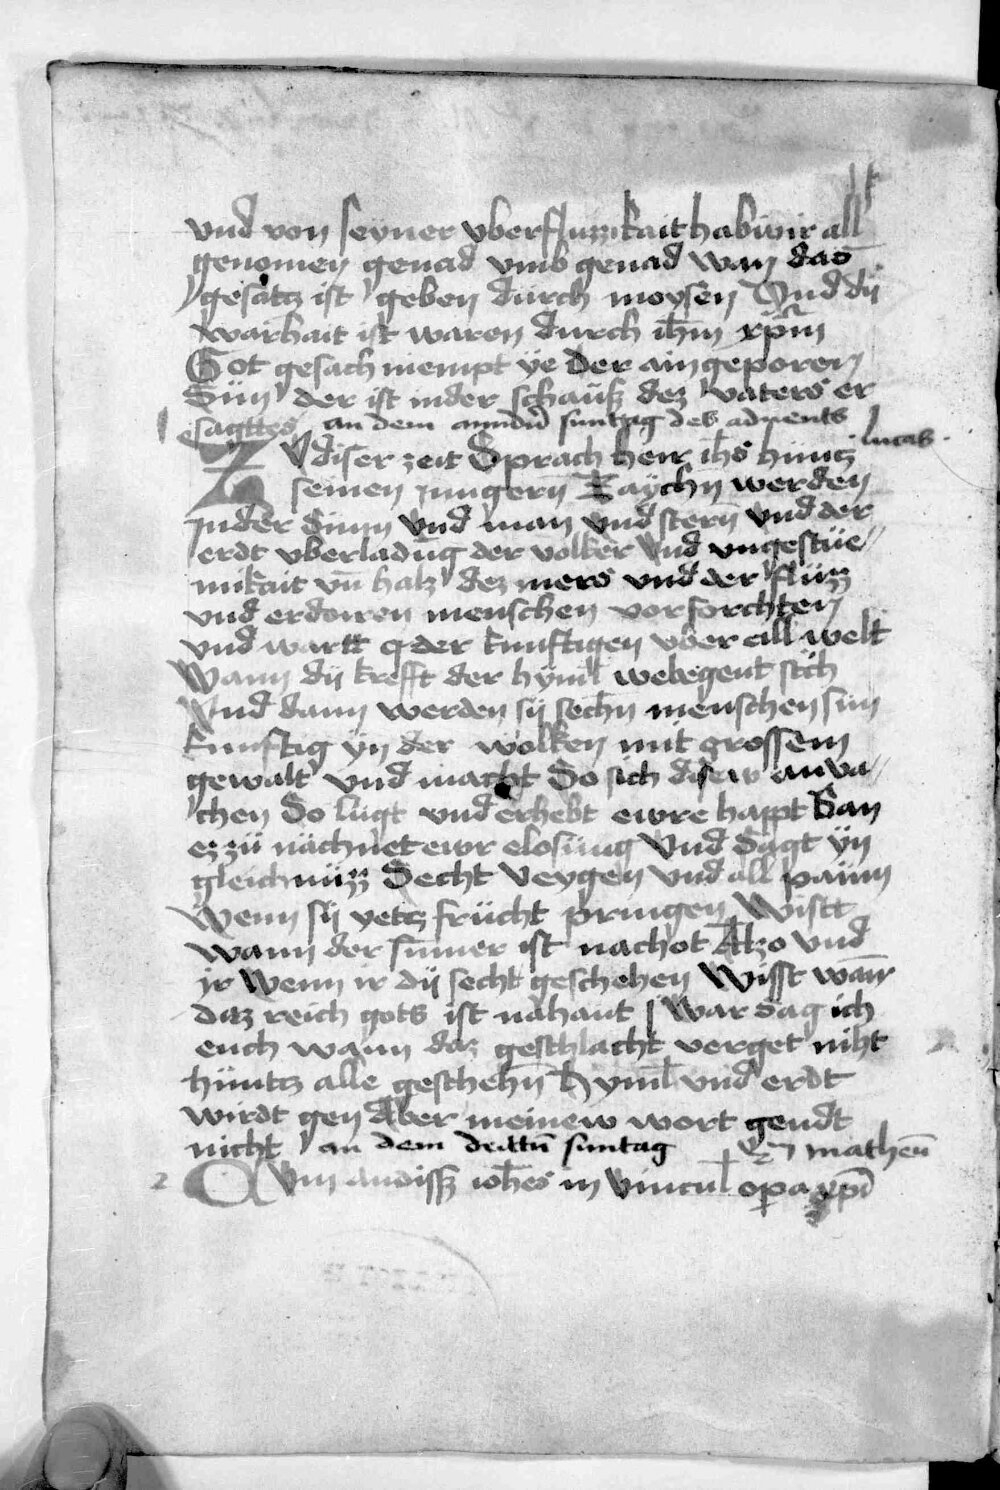 vnd von seyner vberfluzzikait hab wir all
genomen genad vmb genad wan das
gesätz ist geben durch moysen Vnd dij
warhait ist waren durch ihm xpm
Got gesach niempt ye der aingeporen
Sün der ist in der schauß dez vaters er
sagttes an dem anndn suntag des aduents
lucas
ZV diser zeit Sprach herr ihs hüntz
seinen Jungern Zaychn werden
Jn der Sunn vnd man vnd stern vnd der
erdt vberladung der volker vnd vngestüe
mikait vn halz dez mers vnd der flüzz
vnd erdorren menschen vor forchten
vnd wartt der kunftigen vber all welt
Wann dij krefft der hyml webegent sich
Vnd dann werden sij sechn menschen sun
kunftig yn der wolken mit grossem
gewalt vnd macht So sich disew anva
chen So lugt vnd erhebt ewre happt San
ez zü nachnet ewr elosüng Vnd Sagt yn
gleichnüzz Secht Veygen vnd all paüm
Wenn sij yetz frücht pringen Wistt
wann der sumer ist nachot Alzo vnd
yr Wenn ir dij secht geschehen Wisst wann
daz reich gots ist nahant War sag ich
euch wann daz geschlacht verget niht
hüntz alle geschehn Hyml vnd erdt
wirdt gen Aber meinew wort gendt
nicht an dem drittn suntag matheu
2 Cvm audissz iohes in vincul opa xpi